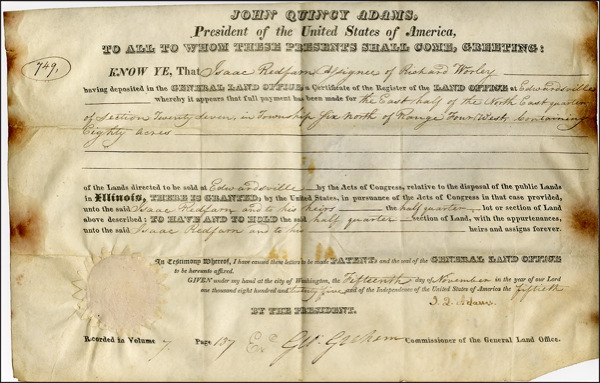 JOHN QUINCY ADAMS,
President of the United States of America,
TO ALL TO WHOM THESE PRESENTS SHALL COME, GREETING:
749,
KNOW YE, That Isaac Redfarn Assignee of Richard Worley
having deposited in the GENERAL LAND OFFICE a Certificate of the Register of the LAND OFFICE at Edwardsville
whereby it appears that full payment has been made for the East half of the North East quarter
of Section Twenty Seven, in Township Six North of Range Four West, Containing
Eighty acres
of the Lands directed to be sold at Edwardsville by the Acts of Congress, relative to the disposal of the public Lands
in Illinois, THERE IS GRANTED, by the United States, in pursuance of the Acts of Congress in that case provided,
unto the said Isaac Redfarn and to his heirs the half quarter lot or section of Land
above described: TO HAVE AND TO HOLD the said half quarter section of Land, with the appurtenances,
unto the said Isaac Redfarn and to his heirs and assigns forever.
In Testimony Whereof, I have caused these letters to be made PATENT, and the seal of the GENERAL LAND OFFICE
to be hereunto affixed.
GIVEN under my hand at the city of Washington, the Fifteenth day of November in the year of our Lord
one thousand eight hundred and twenty five and of the Independence of the United States of America the fiftieth
J. Q. Adams
BY THE PRESIDENT.
Recorded in Volume 7 Page 137 Geo. Graham Commissioner of the General Land Office.